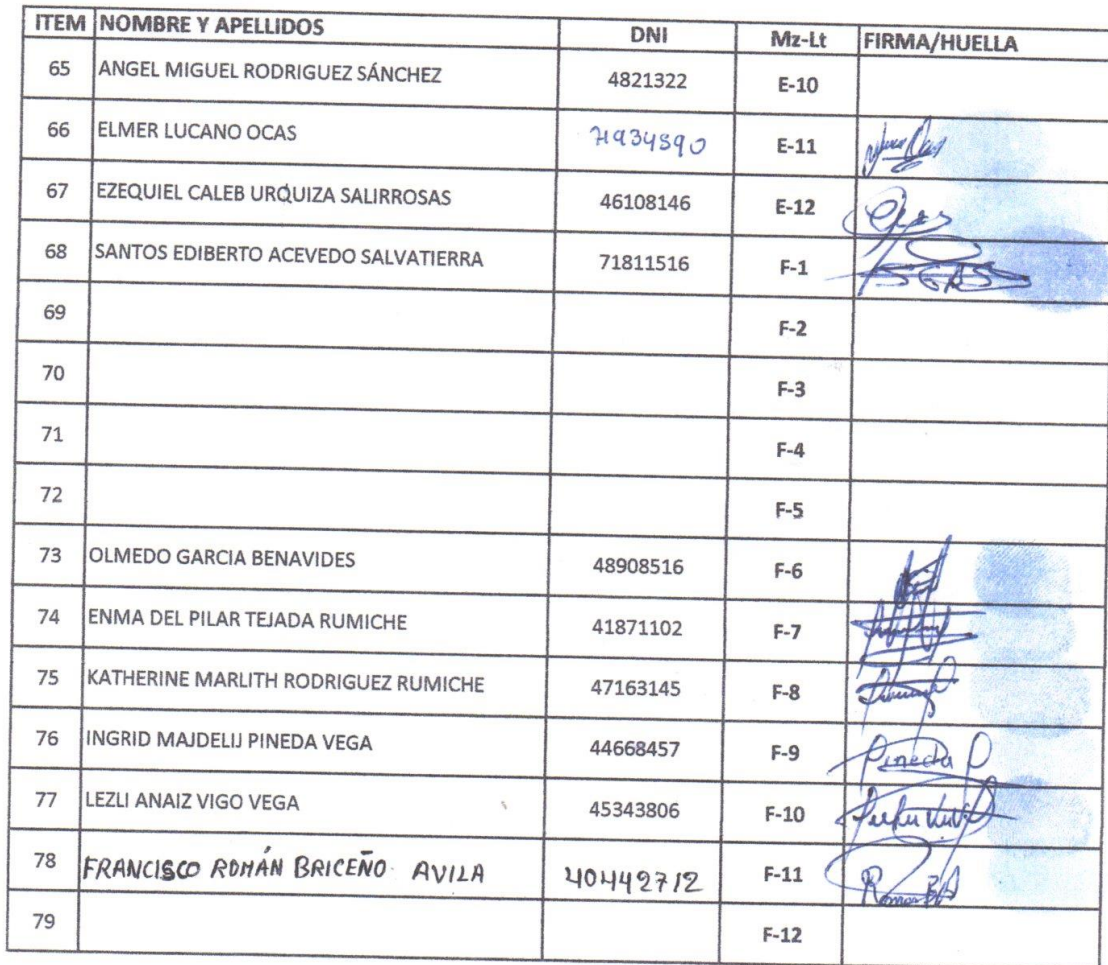 ITEM NOMBRE Y APELLIDOS DNI Mz-Lt FIRMA/HUELLA
65 ANGEL MIGUEL RODRIGUEZ SÁNCHEZ 4821322 E-10
66 ELMER LUCANO OCAS 71934590 E-11
67 EZEQUIEL CALEB URQUIZA SALIRROSAS 46108146 E-12
68 SANTOS EDIBERTO ACEVEDO SALVATIERRA 71811516 F-1
69 F-2
70 F-3
71 F-4
72 F-5
73 OLMEDO GARCIA BENAVIDES 48908516 F-6
74 ENMA DEL PILAR TEJADA RUMICHE 41871102 F-7
75 KATHERINE MARLITH RODRIGUEZ RUMICHE 47163145 F-8
76 INGRID MAJDELIJ PINEDA VEGA 44668457 F-9 Pineda
77 LEZLI ANAIZ VIGO VEGA 45343806 F-10
78 FRANCISCO ROMÁN BRICEÑO AVILA 40449712 F-11
79 F-12